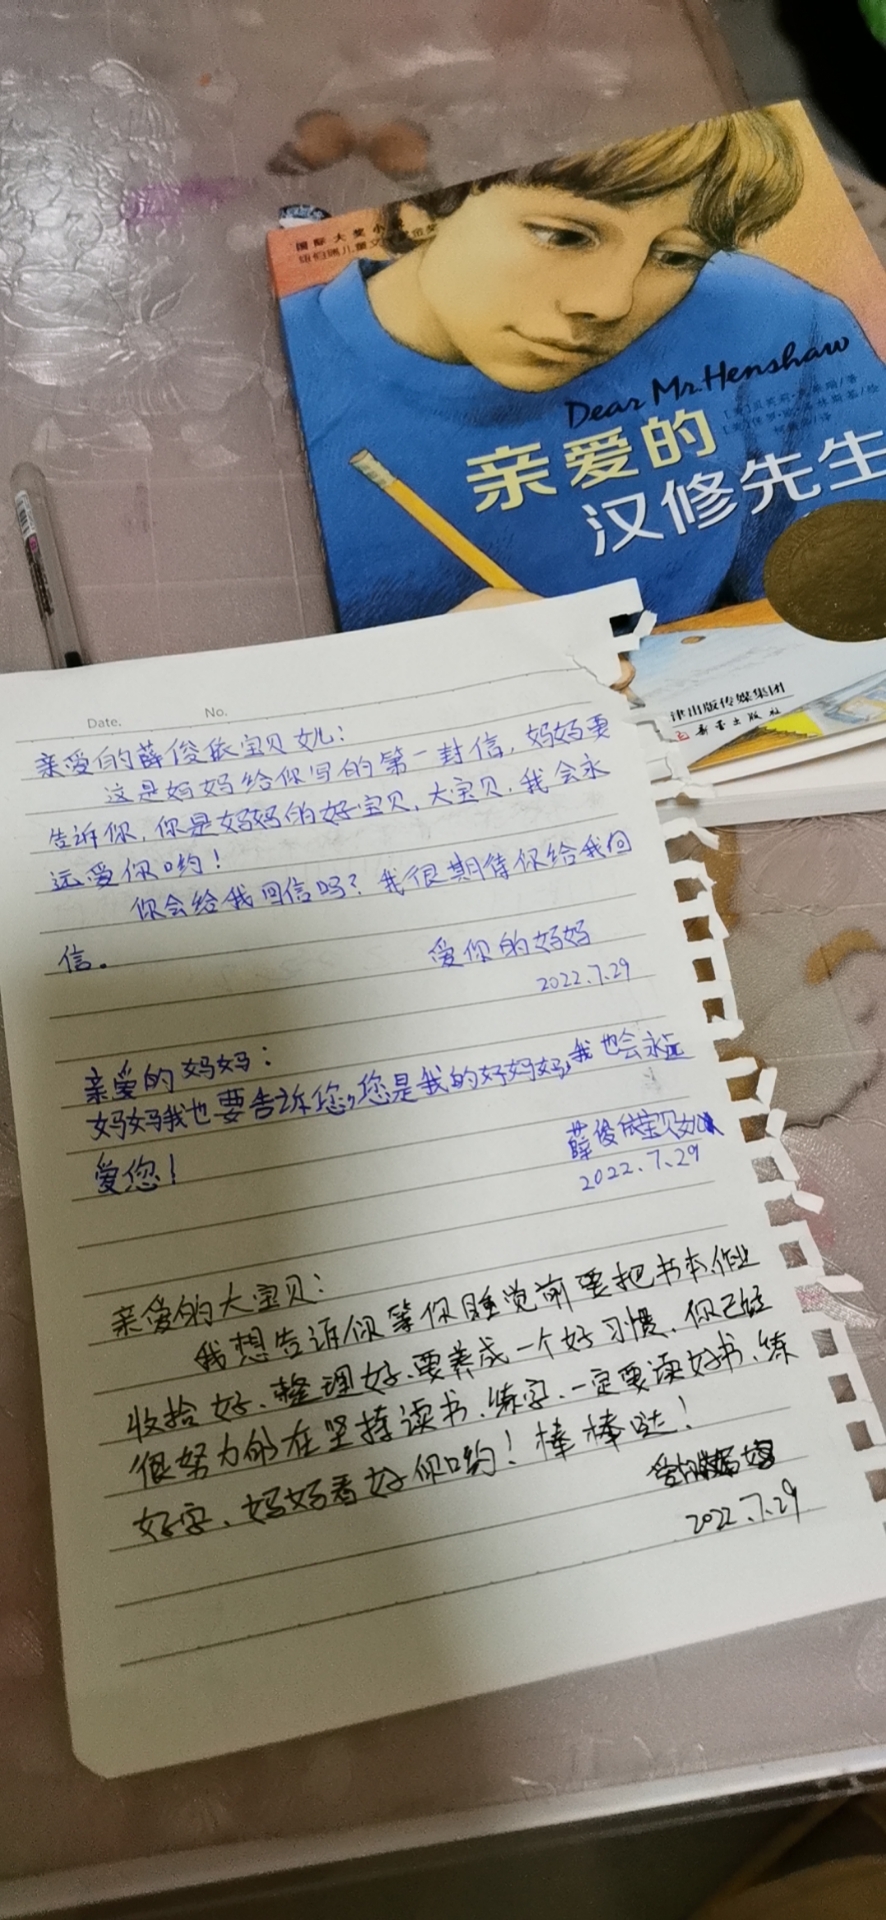 国际大奖小
纽伯瑞儿童文
金奖
Dear Mr. Henshaw
亲爱的
汉修先生
津出版传媒集团
新蕾出版社
Date.
No.
亲爱的薛俊依宝贝女儿：
这是妈妈给你写的第一封信，妈妈要
告诉你，你是妈妈的好宝贝，大宝贝，我会永
远爱你哟！
你会给我回信吗？我很期待你给我回
信。
爱你的妈妈
2022.7.29
亲爱的妈妈：
妈妈我也要告诉您，您是我的好妈妈，我也会永远
爱您！
薛俊依宝贝女儿
2022.7.29
亲爱的大宝贝：
我想告诉你等你睡觉前要把书本作业
收拾好、整理好、要养成一个好习惯，你已经
很努力的在坚持读书、练字、一定要读好书、练
好字、妈妈看好你哟！棒棒哒！
妈妈
2022.7.29